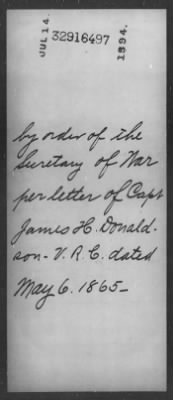 JUL 14. 32916497 1894.
by order of the
Secretary of War
per letter of Capt
James H. Donald-
son - V. R. C. dated
May 6. 1865 -